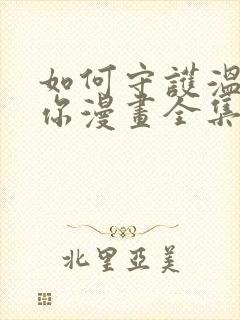 如何守護溫
你漫畫全集
北里亞美